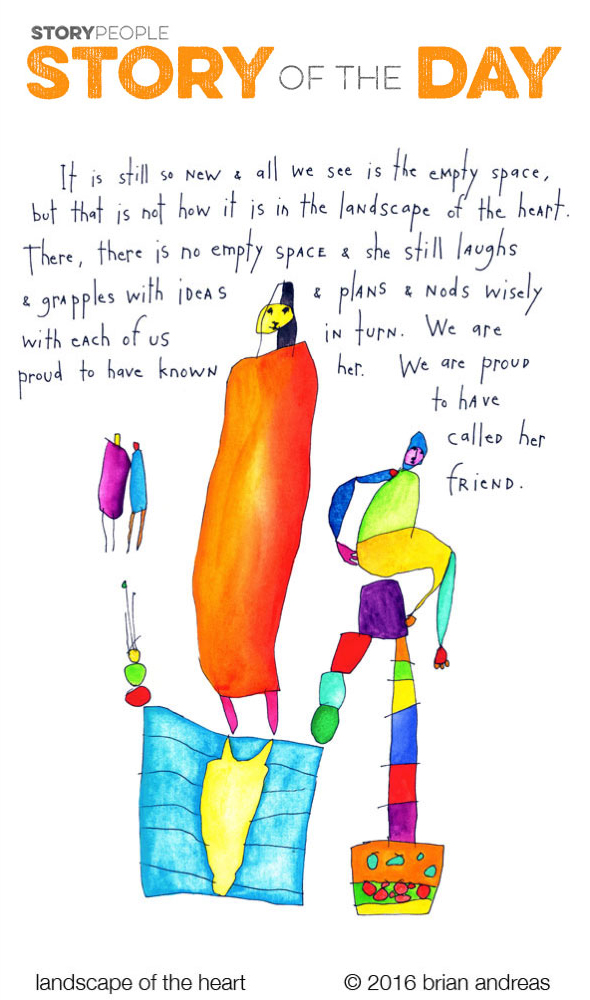 STORYPEOPLE
STORY OF THE DAY
It is still so new & all we see is the empty space,
but that is not how it is in the landscape of the heart.
There, there is no empty space & she still laughs
& grapples with ideas & plans & nods wisely
with each of us in turn. We are
proud to have known her. We are proud
to have
called her
friend.
landscape of the heart © 2016 brian andreas